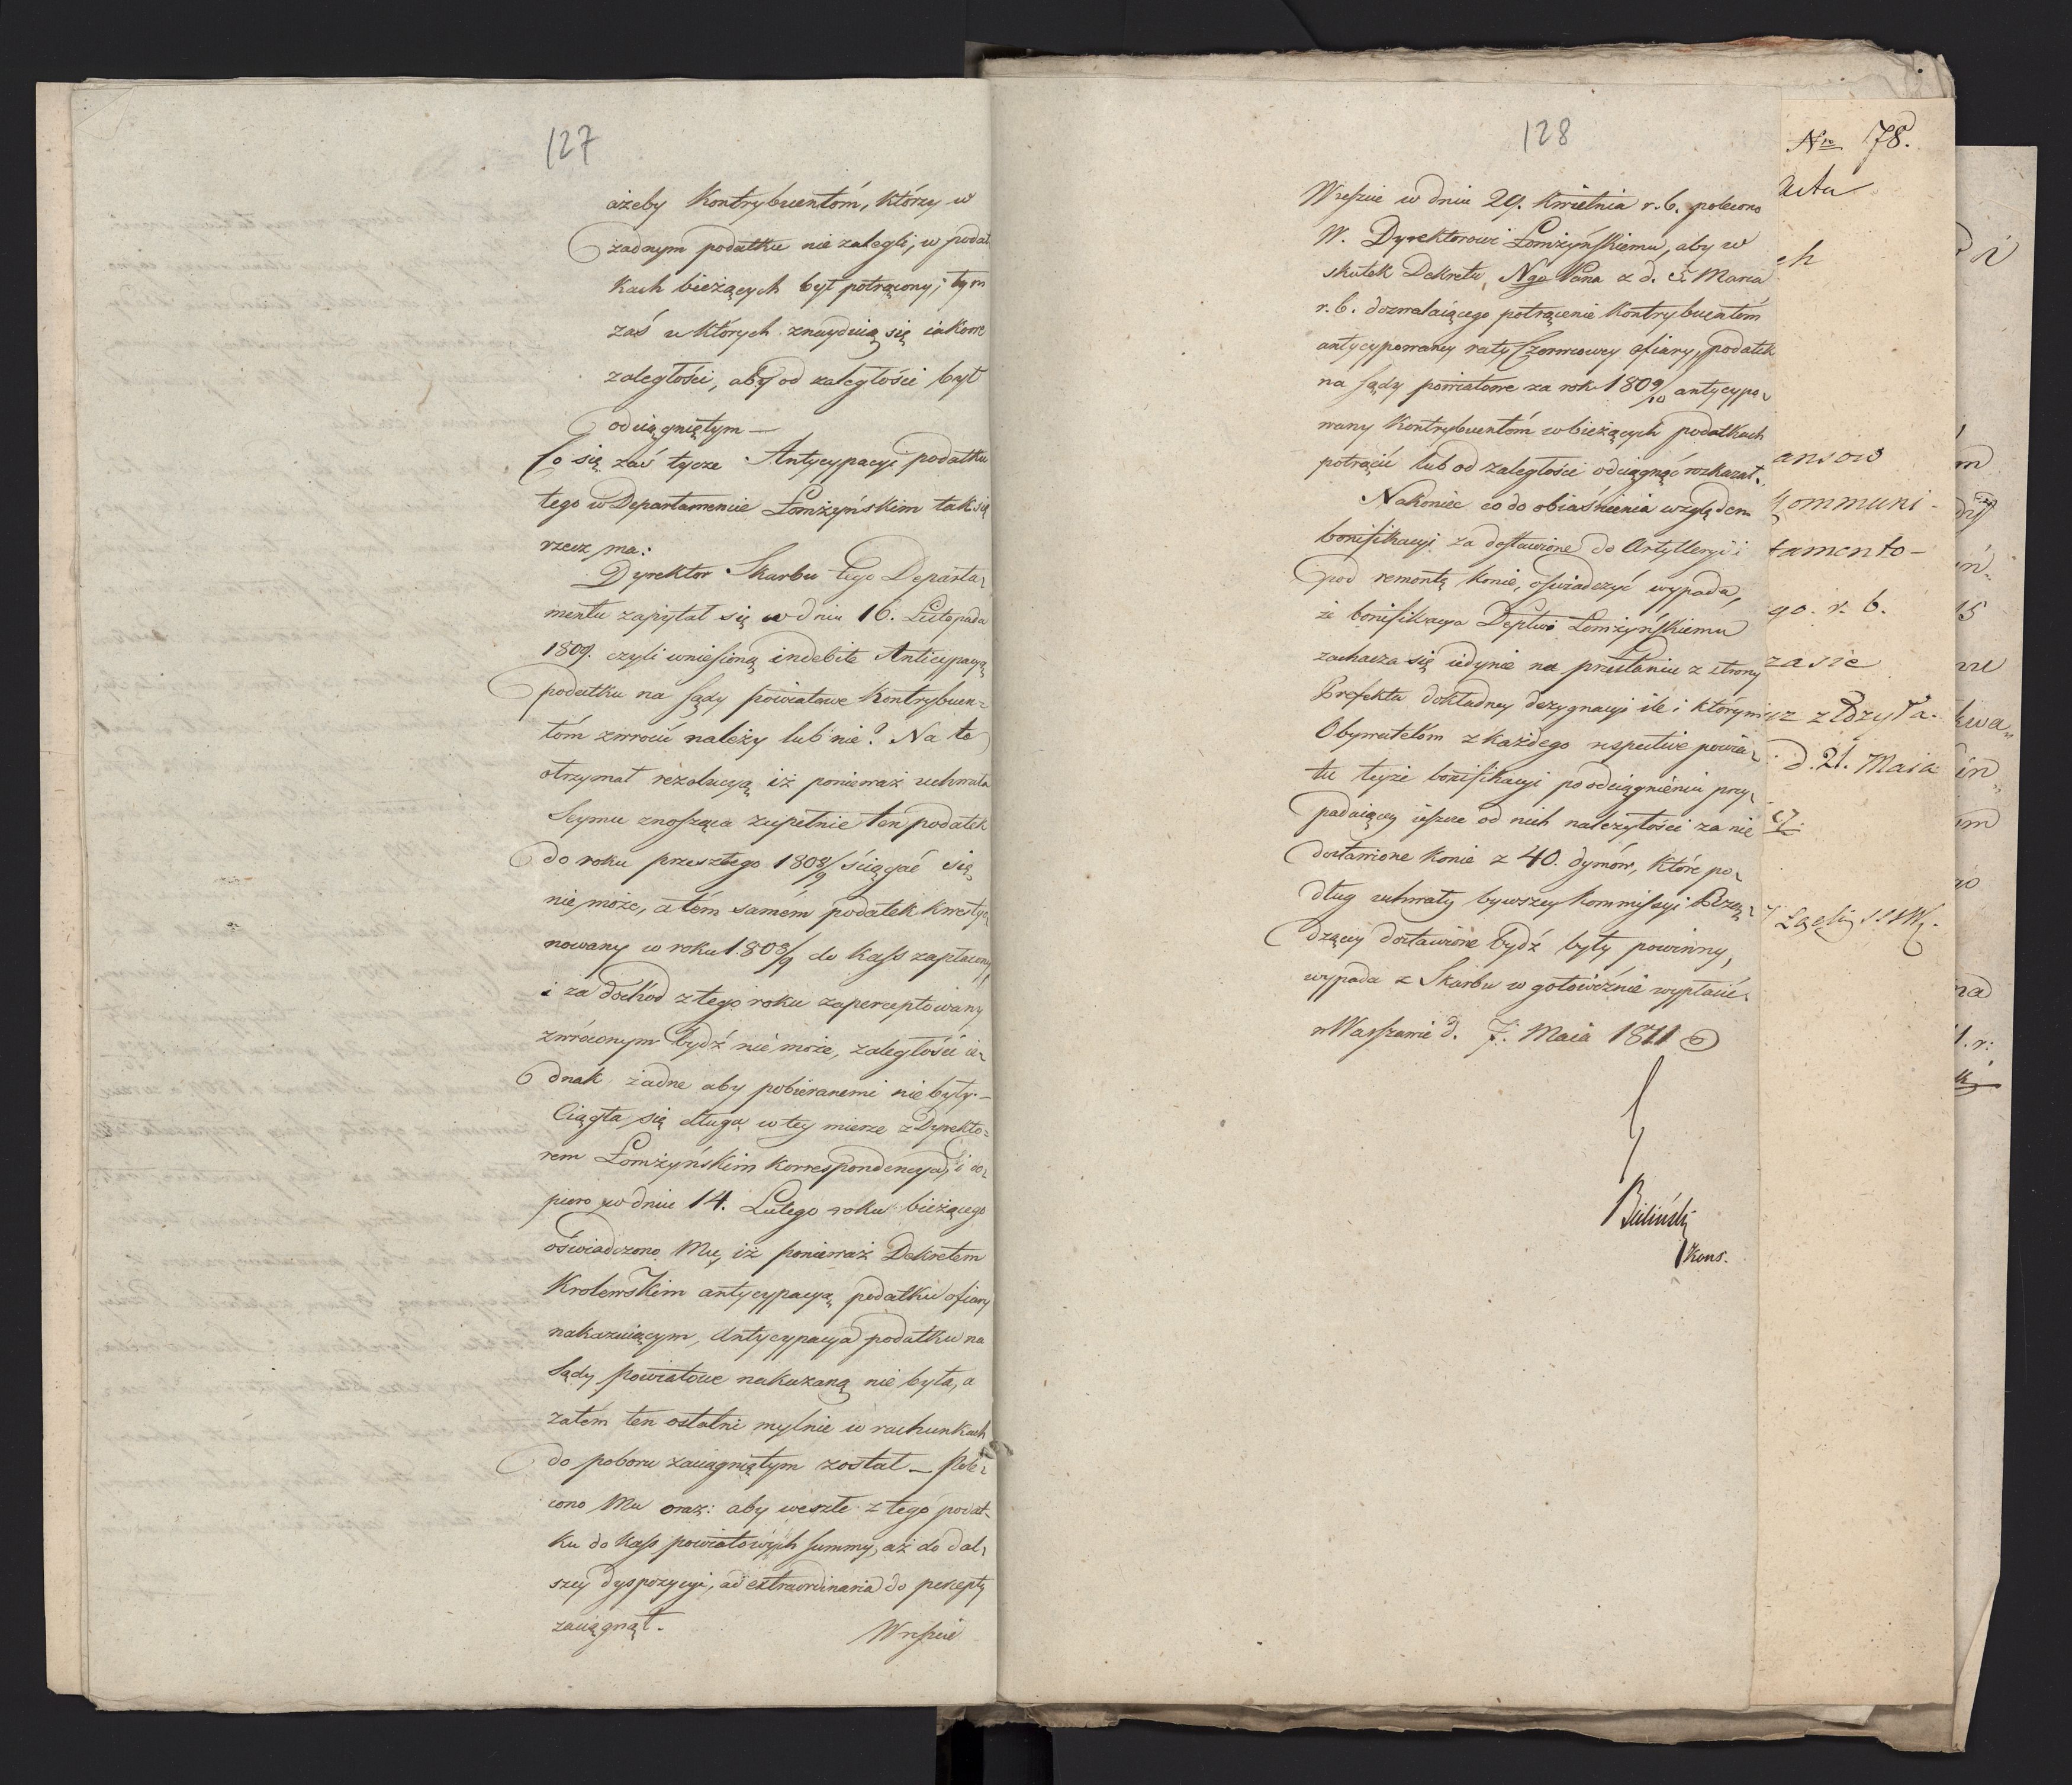 127
ażeby Kontrybuentóm, którzy w
żadnym podatku nie zalegli, w podat
kach bieżących był potrącony; tym
zaś u których znayduią się iakowe
zaległości, aby od zaległości był
odciągniętym —
Co się zaś tycze Antycypacyi podatku
tego w Departamencie Łomżyńskim tak się
rzecz ma:
Dyrektor Skarbu tego Departa-
mentu zapytał się w dniu 16. Listopada
1809. czyli wniesioną indebite Anticypacyą
podatku na sądy powiatowe Kontrybuen-
tóm zwrócić należy lub nie? Na to
otrzymał rezolucyą iż ponieważ uchwała
Seymu znosząca zupełnie ten podatek
do roku przeszłego 1808/9 ściągać się
nie może, a tém samém podatek kwestyo-
nowany w roku 1808/9 do kass zapłacony,
i za dochód z tego roku zaperceptowany
zwróconym bydź nie może, zaległości ie-
dnak żadne aby pobieranemi nie były. —
Ciągła się długa w tey mierze z Dyrekto-
rem Łomżyńskim korrespondencya, i do-
piero w dniu 14. Lutego roku bieżącego
oświadczono Mu, iż ponieważ Dekretem
Krolewskim antycypacyą podatku ofiary
nakazuiącym, Antycypacya podatku na
Sądy powiatowe nakazaną nie była, a
zatém ten ostatni mylnie w rachunkach
do poboru zaciągniętym został — Pole-
cono Mu oraz: aby weszłe z tego podat-
ku do kass powiatowych summy, aż do dal-
szey dyspozycyi, ad extraordinaria do percepty
zaciągnął.
Wreszcie
128
Wreszcie w dniu 29. kwietnia r. b. polecono
W. Dyrektorowi Łomżyńskiemu, aby w
skutek Dekretu, Ngo Pana z d. 5 Marca
r. b. dozwalaiącego potrącenie Kontrybuentóm
antycypowaney raty Czerwcowey ofiary, podatek
na sądy powiatowe za rok 1809/10 antycypo-
wany Kontrybuentóm w bieżących podatkach
potrącić lub od zaległości odciągnąć rozkazał.
Nakoniec co do obiaśnienia względem
bonifikacyi za dostawione do Artylleryi i
pod remontę konie, oświadczyć wypada,
że bonifikacya Deptwi Łomżyńskiemu
zachacza się iedynie na przesłaniu z strony
Prefekta dokładney dezygnacyi ile i którym
Obywatelom z każdego respective powia-
tu teyże bonifikacyi po odciągnieniu przy-
padaiącey ieszcze od nich należytości za nie
dostawione konie z 40. dymów, które po-
dług uchwały bywszey Kommissyi Rzą-
dzącey dostawione bydź były powinny,
wypada z Skarbu w gotowiźnie wypłacić.
w Warszawie d. 7. Maia 1811
Bieliński
Kons.
Nr 78.
Acta
ch
ansow
Kommuni-
tamento-
go. r. b.
zasie
yz złozyła.
d. 21. Maia
15
kwa-